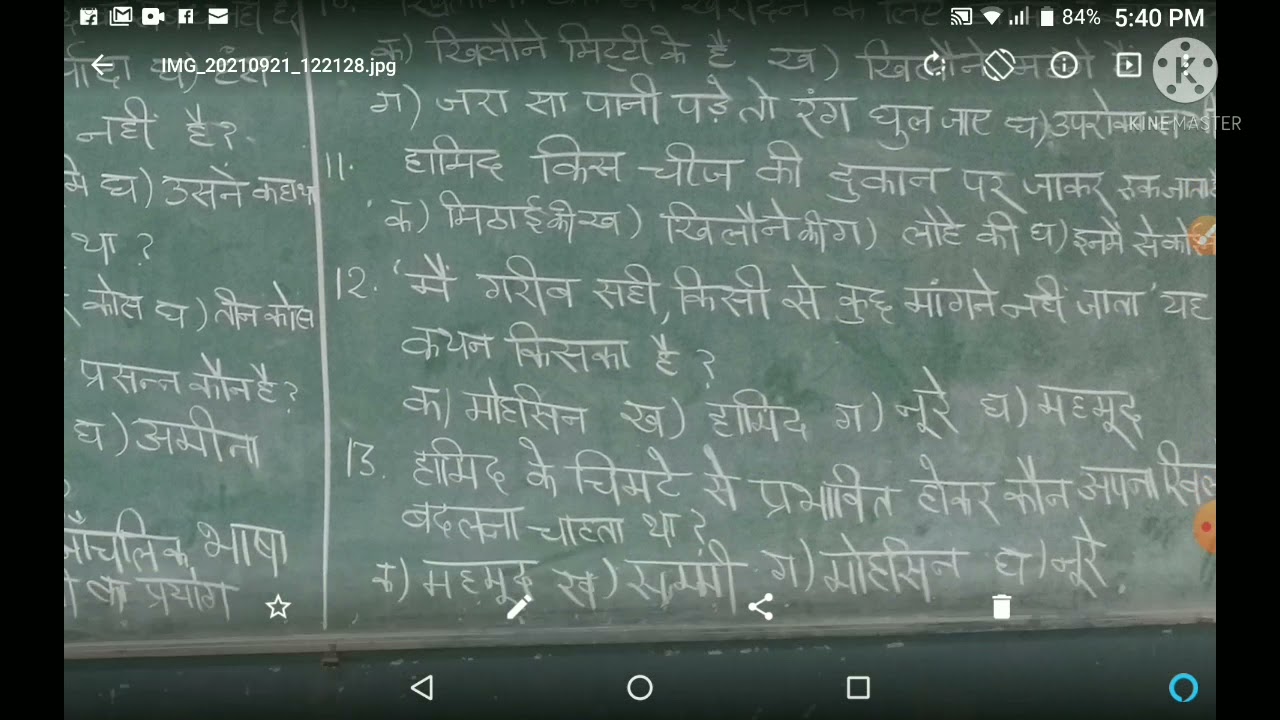 84% 5:40 PM
IMG_20210921_122128.jpg
KINEMASTER
नहीं है?
घ) उसने कहा था
था ?
कोस घ) तीन कोस
प्रसन्न कौन है?
घ) अमीना
भाषा
का प्रयोग
क) खिलौने मिट्टी के हैं ख) खिलौने
ग) जरा सा पानी पड़े तो रंग घुल जाए घ) उपरोक्त
11. हामिद किस चीज की दुकान पर जाकर रुक जाता है
क) मिठाई की ख) खिलौने की ग) लोहे की घ) इनमें से को
12. 'मैं गरीब सही, किसी से कुछ मांगने नहीं जाता' यह
कथन किसका है ?
क) मोहसिन ख) हामिद ग) नूरे घ) महमूद
13. हामिद के चिमटे से प्रभावित होकर कौन अपना
बदलना चाहता था ?
क) महमूद ख) सम्मी ग) मोहसिन घ) नूरे